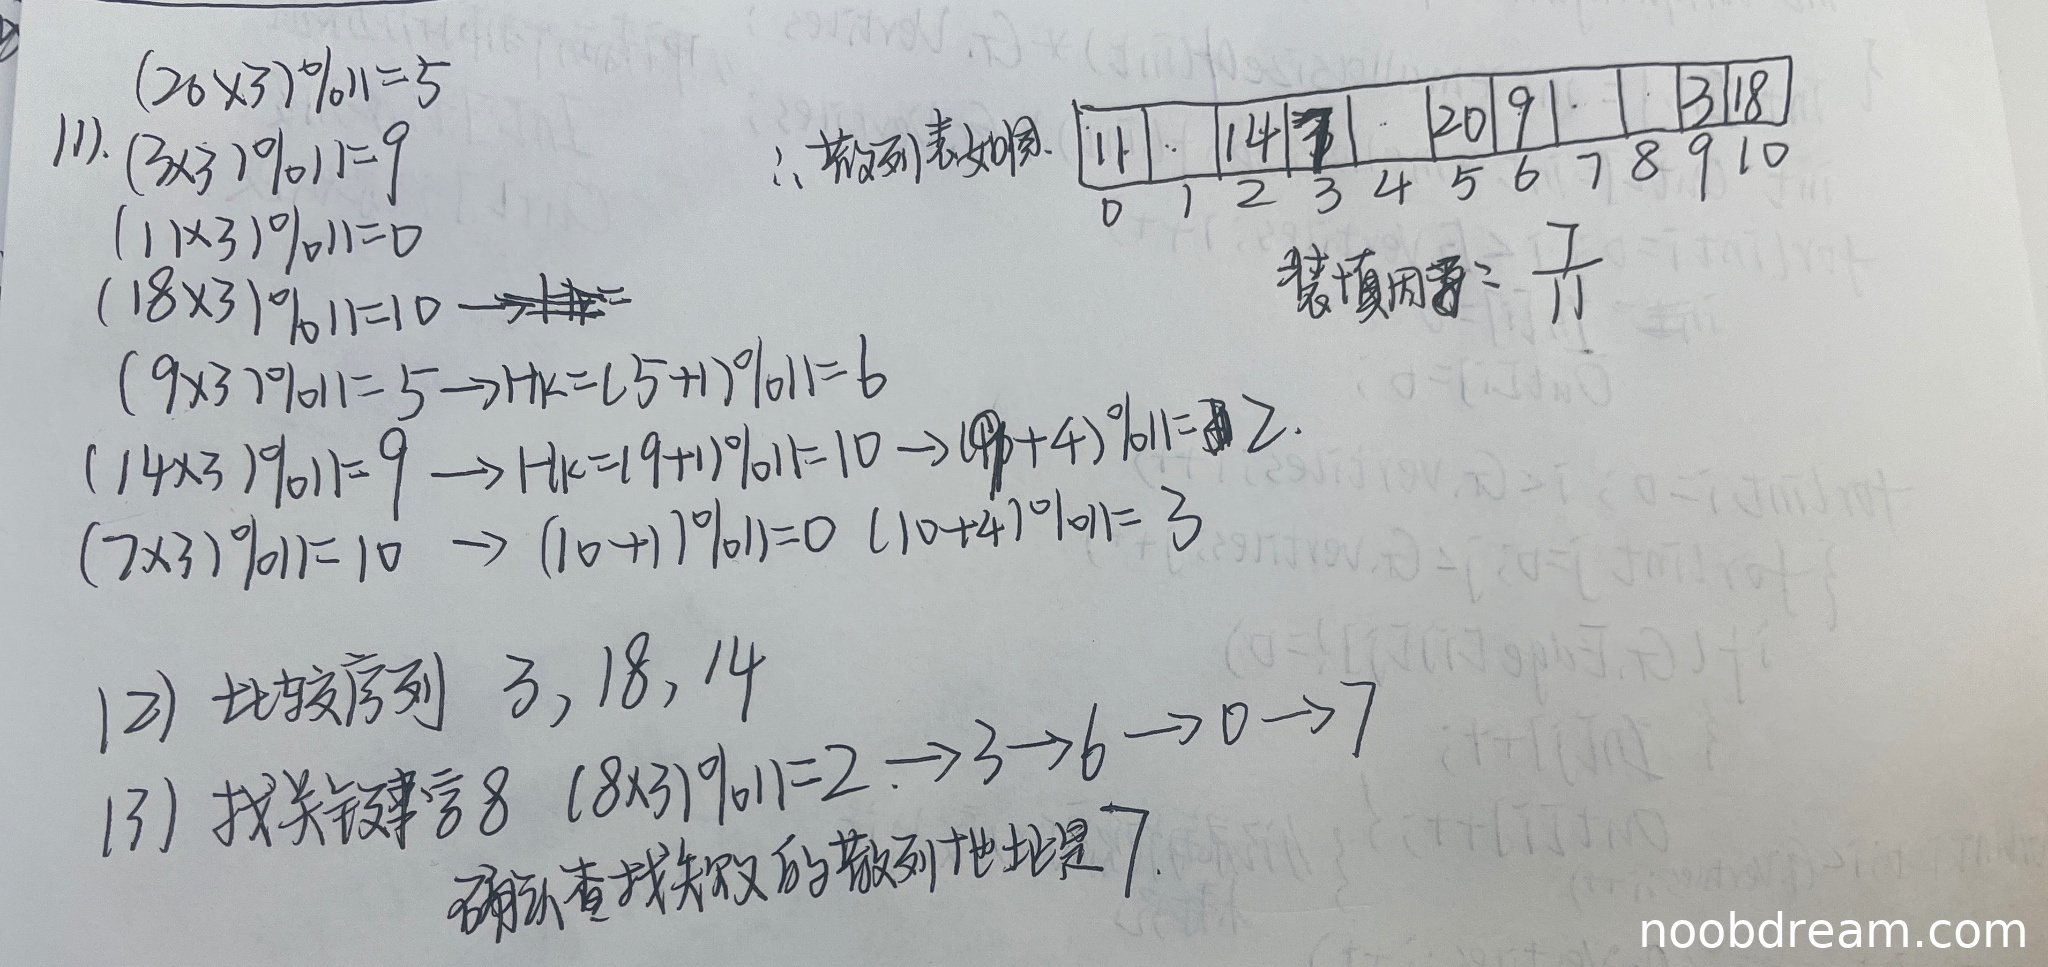 (20×3)%11=5
(1). (3×3)%11=9
(11×3)%11=0
(18×3)%11=10 →
(9×3)%11=5→Hk=(5+1)%11=6
(14×3)%11=9 → Hk=(9+1)%11=10 → (9+4)%11=2.
(7×3)%11=10 → (10+1)%11=0 (10+4)%11=3
∴ 散列表如图.
11 14 7 20 9 3 18
0 1 2 3 4 5 6 7 8 9 10
装填因子= 7/11
(2) 比较序列 3, 18, 14
(3) 找关键字8 (8×3)%11=2 →3→6→0→7
确认查找失败的散列地址是7.
noobdream.com